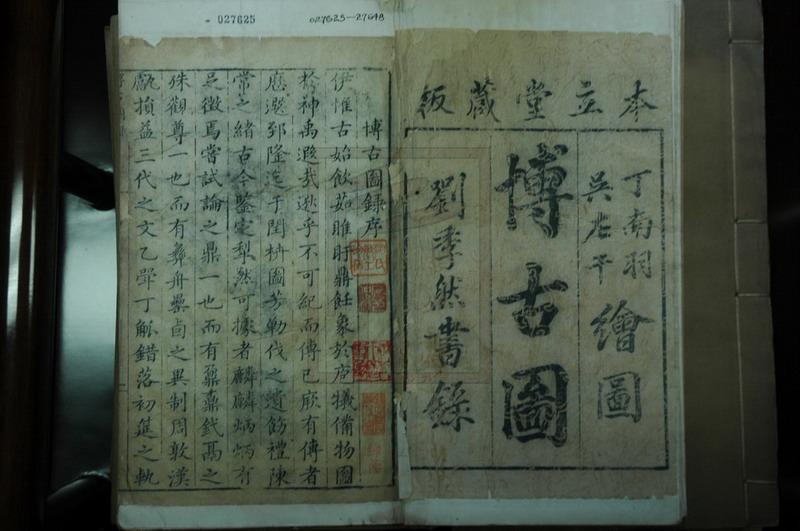 027625
027625—27648
本立堂藏板
丁南羽
吳左千
繪圖
博古圖
劉季然書錄
博古圖錄序
伊惟古始飲茹睢盱鼎飪象於庖犧備物圖
於神禹遐哉邈乎不可紀而傳已厥有傳者
歷選郅隆迄于閏枿圖芳勒伐之遺飭禮陳
常之緒古今鑒定犁然可據者麟麟炳炳有
足徵焉嘗試論之鼎一也而有鼐鼒釴鬲之
殊觀尊一也而有彝舟罍卣之異制周敦漢
甗損益三代之文乙斝丁觚錯落初筵之軌